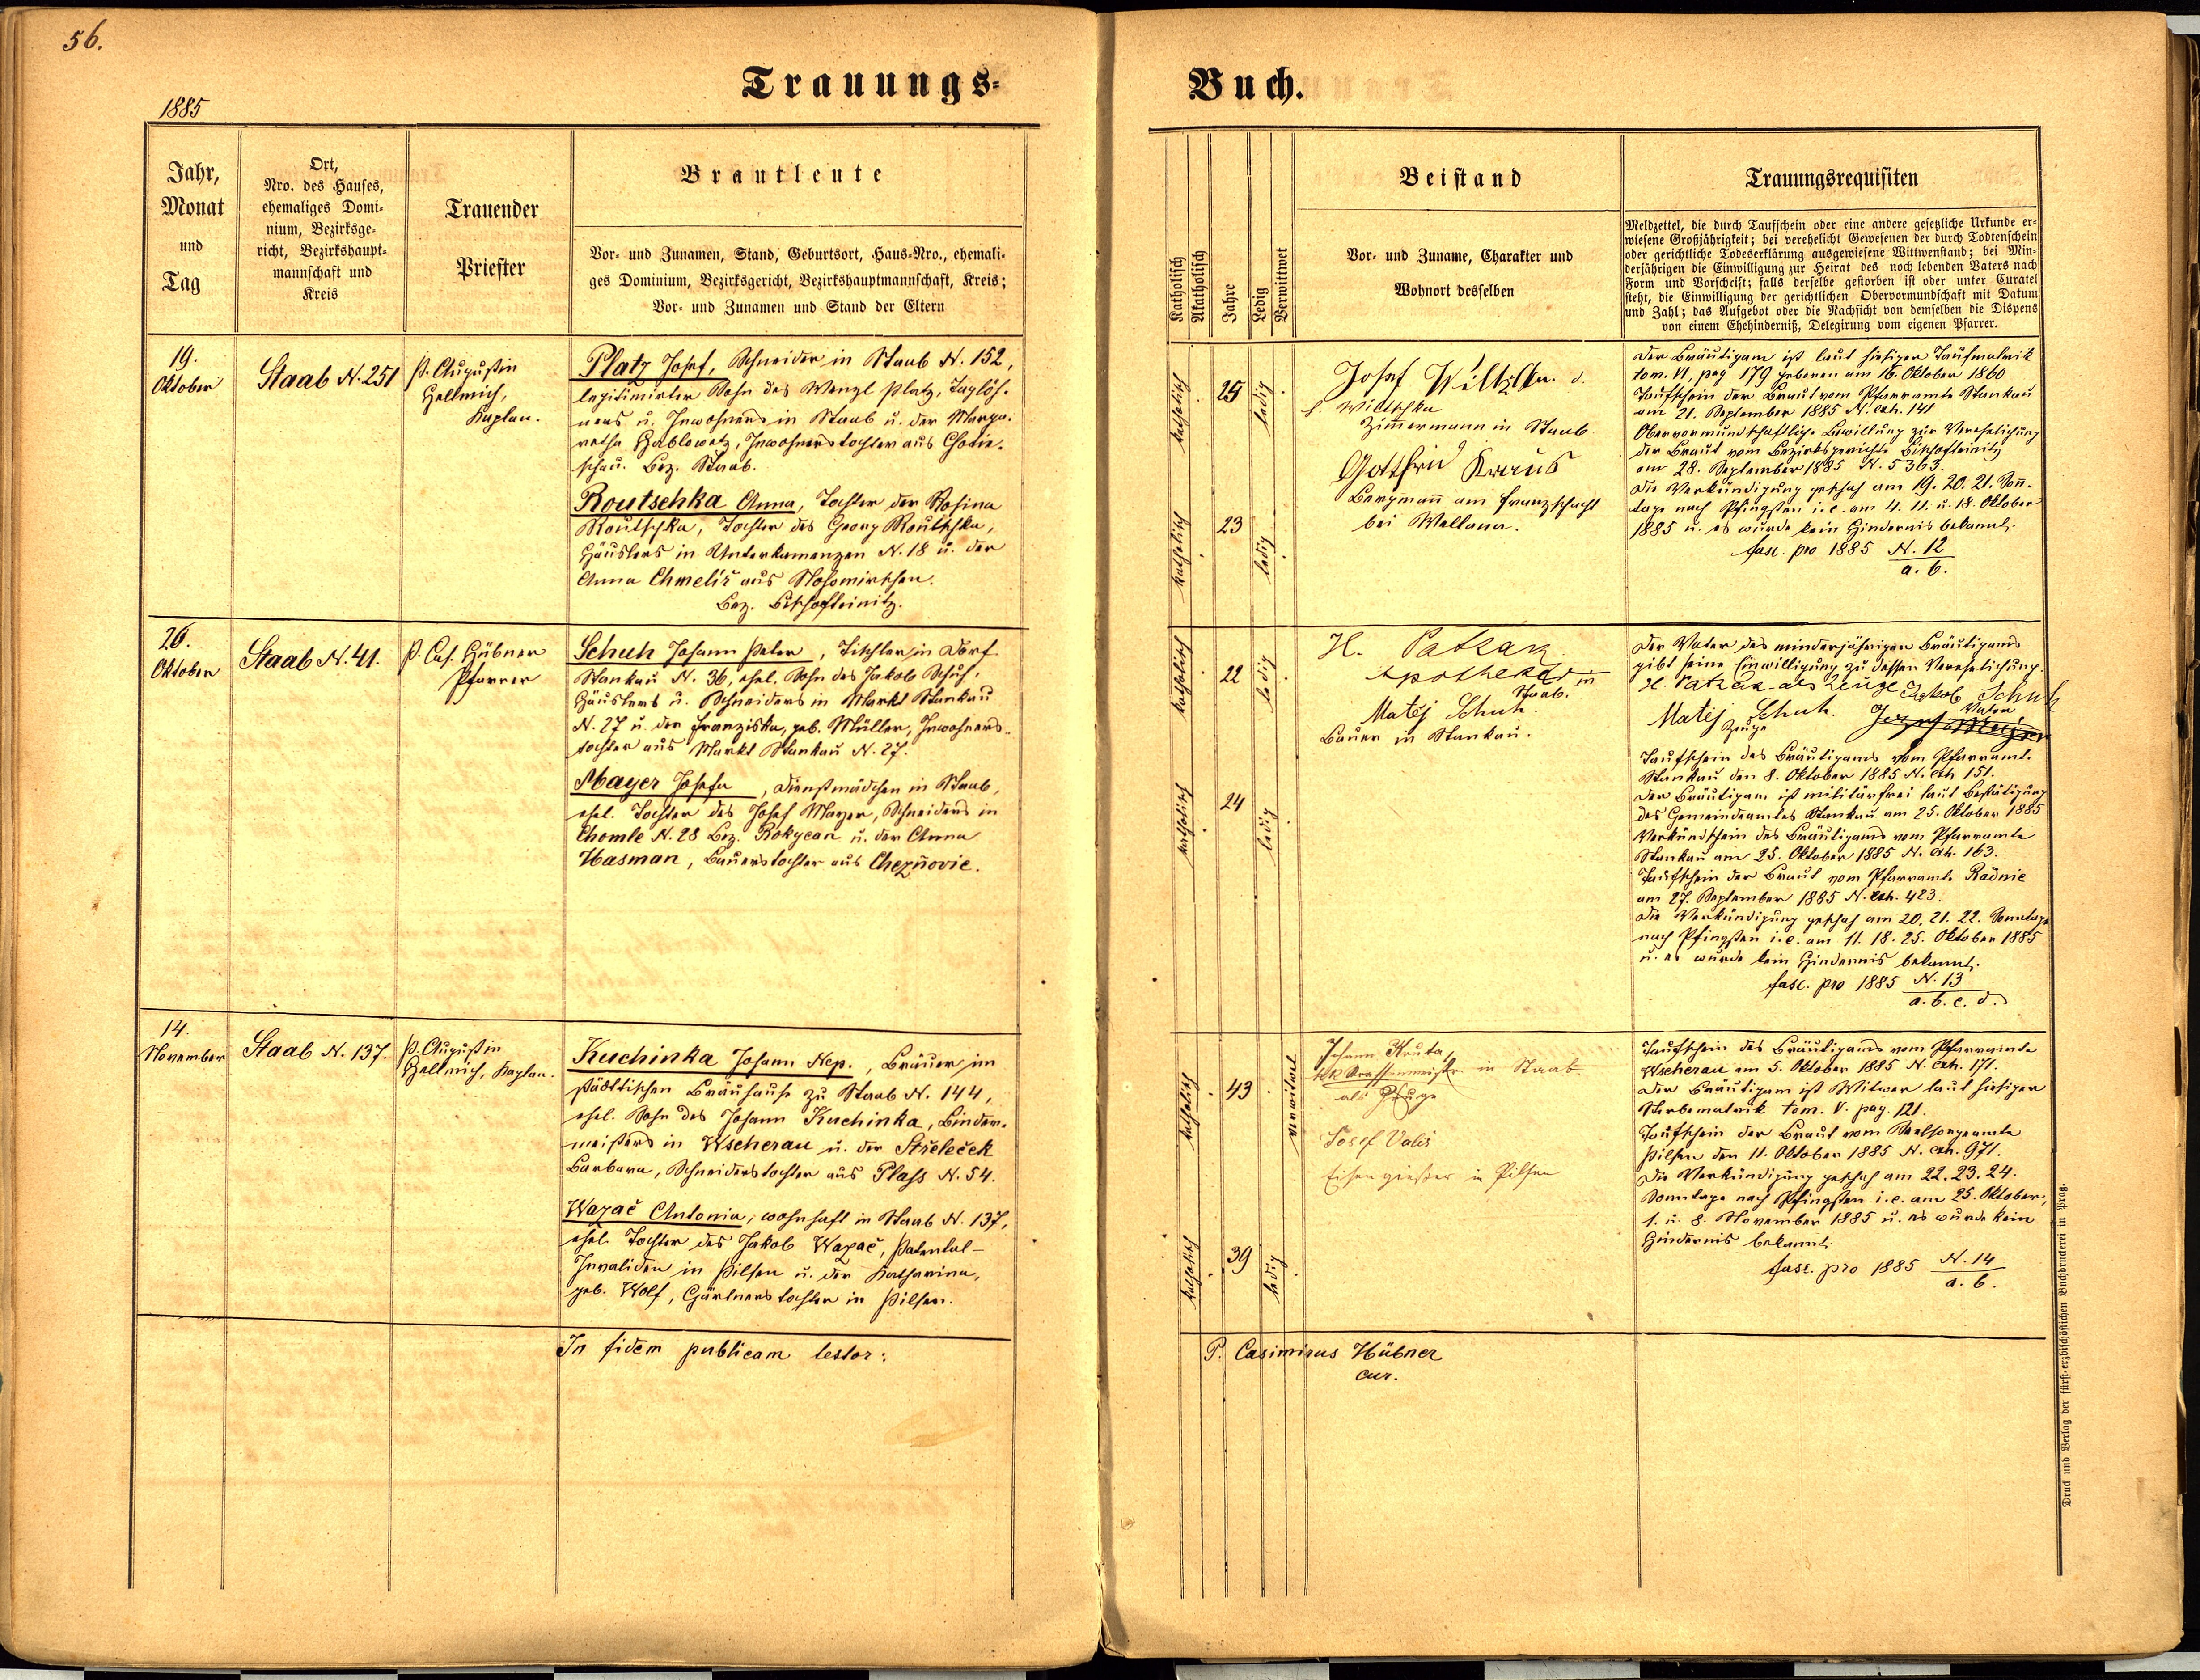 56.
Trauungs=
Buch.
1885
Jahr,
Monat
und
Tag
Ort,
Nro. des Hauses,
ehemaliges Domi=
nium, Bezirksge=
richt, Bezirkshaupt=
mannschaft und
Kreis
Trauender
Priester
Brautleute
Vor= und Zunamen, Stand, Geburtsort, Haus=Nro., ehemali=
ges Dominium, Bezirksgericht, Bezirkshauptmannschaft, Kreis;
Vor= und Zunamen und Stand der Eltern
Katholisch
Akatholisch
Jahre
Ledig
Verwittwet
Beistand
Vor= und Zuname, Charakter und
Wohnort desselben
Trauungsrequisiten
Meldzettel, die durch Taufschein oder eine andere gesetzliche Urkunde er=
wiesene Großjährigkeit; bei verehelicht Gewesenen der durch Todtenschein
oder gerichtliche Todeserklärung ausgewiesene Wittwenstand; bei Min=
derjährigen die Einwilligung zur Heirat des noch lebenden Vaters nach
Form und Vorschrift; falls derselbe gestorben ist oder unter Curatel
steht, die Einwilligung der gerichtlichen Obervormundschaft mit Datum
und Zahl; das Aufgebot oder die Nachsicht von demselben die Dispens
von einem Ehehinderniß, Delegirung vom eigenen Pfarrer.
19.
Oktober
Staab N. 251
P. Augustin
Hellmich,
Kaplan.
Platz Josef, Schneider in Staab N. 152,
legitimirter Sohn des Wenzl Platz, Taglöh-
ners u. Inwohners in Staab u. der Marga-
retha Hablowetz, Inwohnerstochter aus Chotie-
schau. Bez. Staab.
Routschka Anna, Tochter der Rosina
Routschka, Tochter des Georg Routschka,
Häuslers in Unterkamenzen N. 18 u. der
Anna Chmelíř aus
Bez. Bischofteinitz.
katholisch
25
ledig
katholisch
23
ledig
Josef
Zimmermann in Staab
Gottfried Kraus
Bergmann am Franzschacht
bei Wellana.
Der Bräutigam ist laut hiesiger Taufmatrik
tom. VI, pag 179 geboren am 16. Oktober 1860
Taufschein der Braut vom Pfarramte Stankau
am 21. September 1885 N. exh. 141
Obervormundschaftliche Bewilligung zur Verehelichung
der Braut vom Bezirksgerichte Bischofteinitz
am 28. September 1885 N. 5363.
Die Verkündigung geschah am 19. 20. 21. Son-
tage nach Pfingsten i. e. am 4. 11. u. 18. Oktober
1885 u. es wurde kein Hindernis bekannt.
fasc. pro 1885 N. 12
a. b.
26.
Oktober
Staab N. 41.
P. Cas. Hübner
Pfarrer
Schuh Johann Peter, Tischler in Dorf
Stankau N. 36, ehel. Sohn des Jakob Schuh,
Häuslers u. Schneiders in Markt Stankau
N. 27 u. der Franziska, geb. Müller, Inwohners-
tochter aus Markt Stankau N. 27.
Mayer Josefa, Dienstmädchen in Staab,
ehel. Tochter des Josef Mayer, Schneiders in
Chomle N. 28 Bez. Rokycan u. der Anna
Hasman, Bauerstochter aus
katholisch
22
ledig
katholisch
24
ledig
H. Patzak
Apotheker in
Staab.
Matěj Schuh.
Bauer in Stankau.
Der Vater des minderjährigen Bräutigams
gibt seine Einwilligung zu dessen Verehelichung.
H. Patzak als Zeuge Jakob Schuh
Vater
Matěj Schuh.
Zeuge
Taufschein des Bräutigams vom Pfarramte
Stankau den 8. Oktober 1885 N. exh 151.
Der Bräutigam ist militärfrei laut Bestätigung
des Gemeindeamtes Stankau am 25. Oktober 1885
Verkündschein des Bräutigams vom Pfarramte
Stankau am 25. Oktober 1885 N. exh. 163.
Taufschein der Braut vom Pfarramte Radnic
am 27. September 1885 N. exh. 423.
Die Verkündigung geschah am 20. 21. 22. Sonntage
nach Pfingsten i. e. am 11. 18. 25. Oktober 1885
u. es wurde kein Hindernis bekannt.
fasc. pro 1885 N. 13
a. b. c. d.
14.
November
Staab N. 137.
P. Augustin
Hellmich, Kaplan.
Kuchinka Johann Nep., Bräuer im
städtischen Bräuhause zu Staab N. 144,
ehel. Sohn des Johann Kuchinka, Binder-
meisters in Wscherau u. der Střeleček
Barbara, Schneiderstochter aus Plass N. 54.
Wazač Antonia, wohnhaft in Staab N. 137,
ehel. Tochter des Jakob Wazač, Patental-
Invaliden in Pilsen u. der Katharina,
geb. Wolf, Gärtnerstochter in Pilsen.
katholisch
43
verwitwet
katholisch
39
ledig
Johann Kruta,
in Staab
als Zeuge
Josef Valis
Eisengießer in Pilsen
Taufschein des Bräutigams vom Pfarramte
Wscherau am 5. Oktober 1885 N. exh. 171.
Der Bräutigam ist Witwer laut hiesiger
Sterbematrik tom. V. pag. 121.
Taufschein der Braut vom Seelsorgeamte
Pilsen den 11. Oktober 1885 N. exh. 971.
Die Verkündigung geschah am 22. 23. 24.
Sonntage nach Pfingsten i. e. am 25. Oktober,
1. u. 8. November 1885 u. es wurde kein
Hindernis bekannt.
fasc. pro 1885 N. 14
a. b.
In fidem publicam testor:
P. Casimirus Hübner
cur.
Druck und Verlag der fürst=erzbischöflichen Buchdruckerei in Prag.